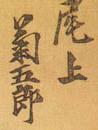 尾上
菊五郎